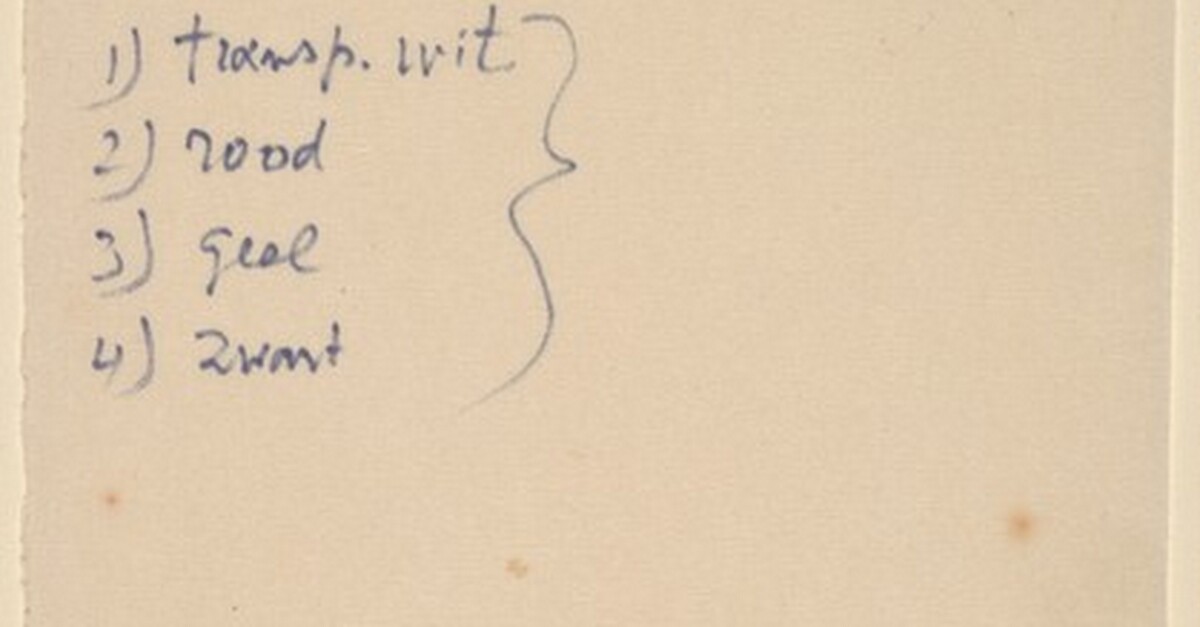 1) transp. wit
2) rood
3) geel
4) zwart